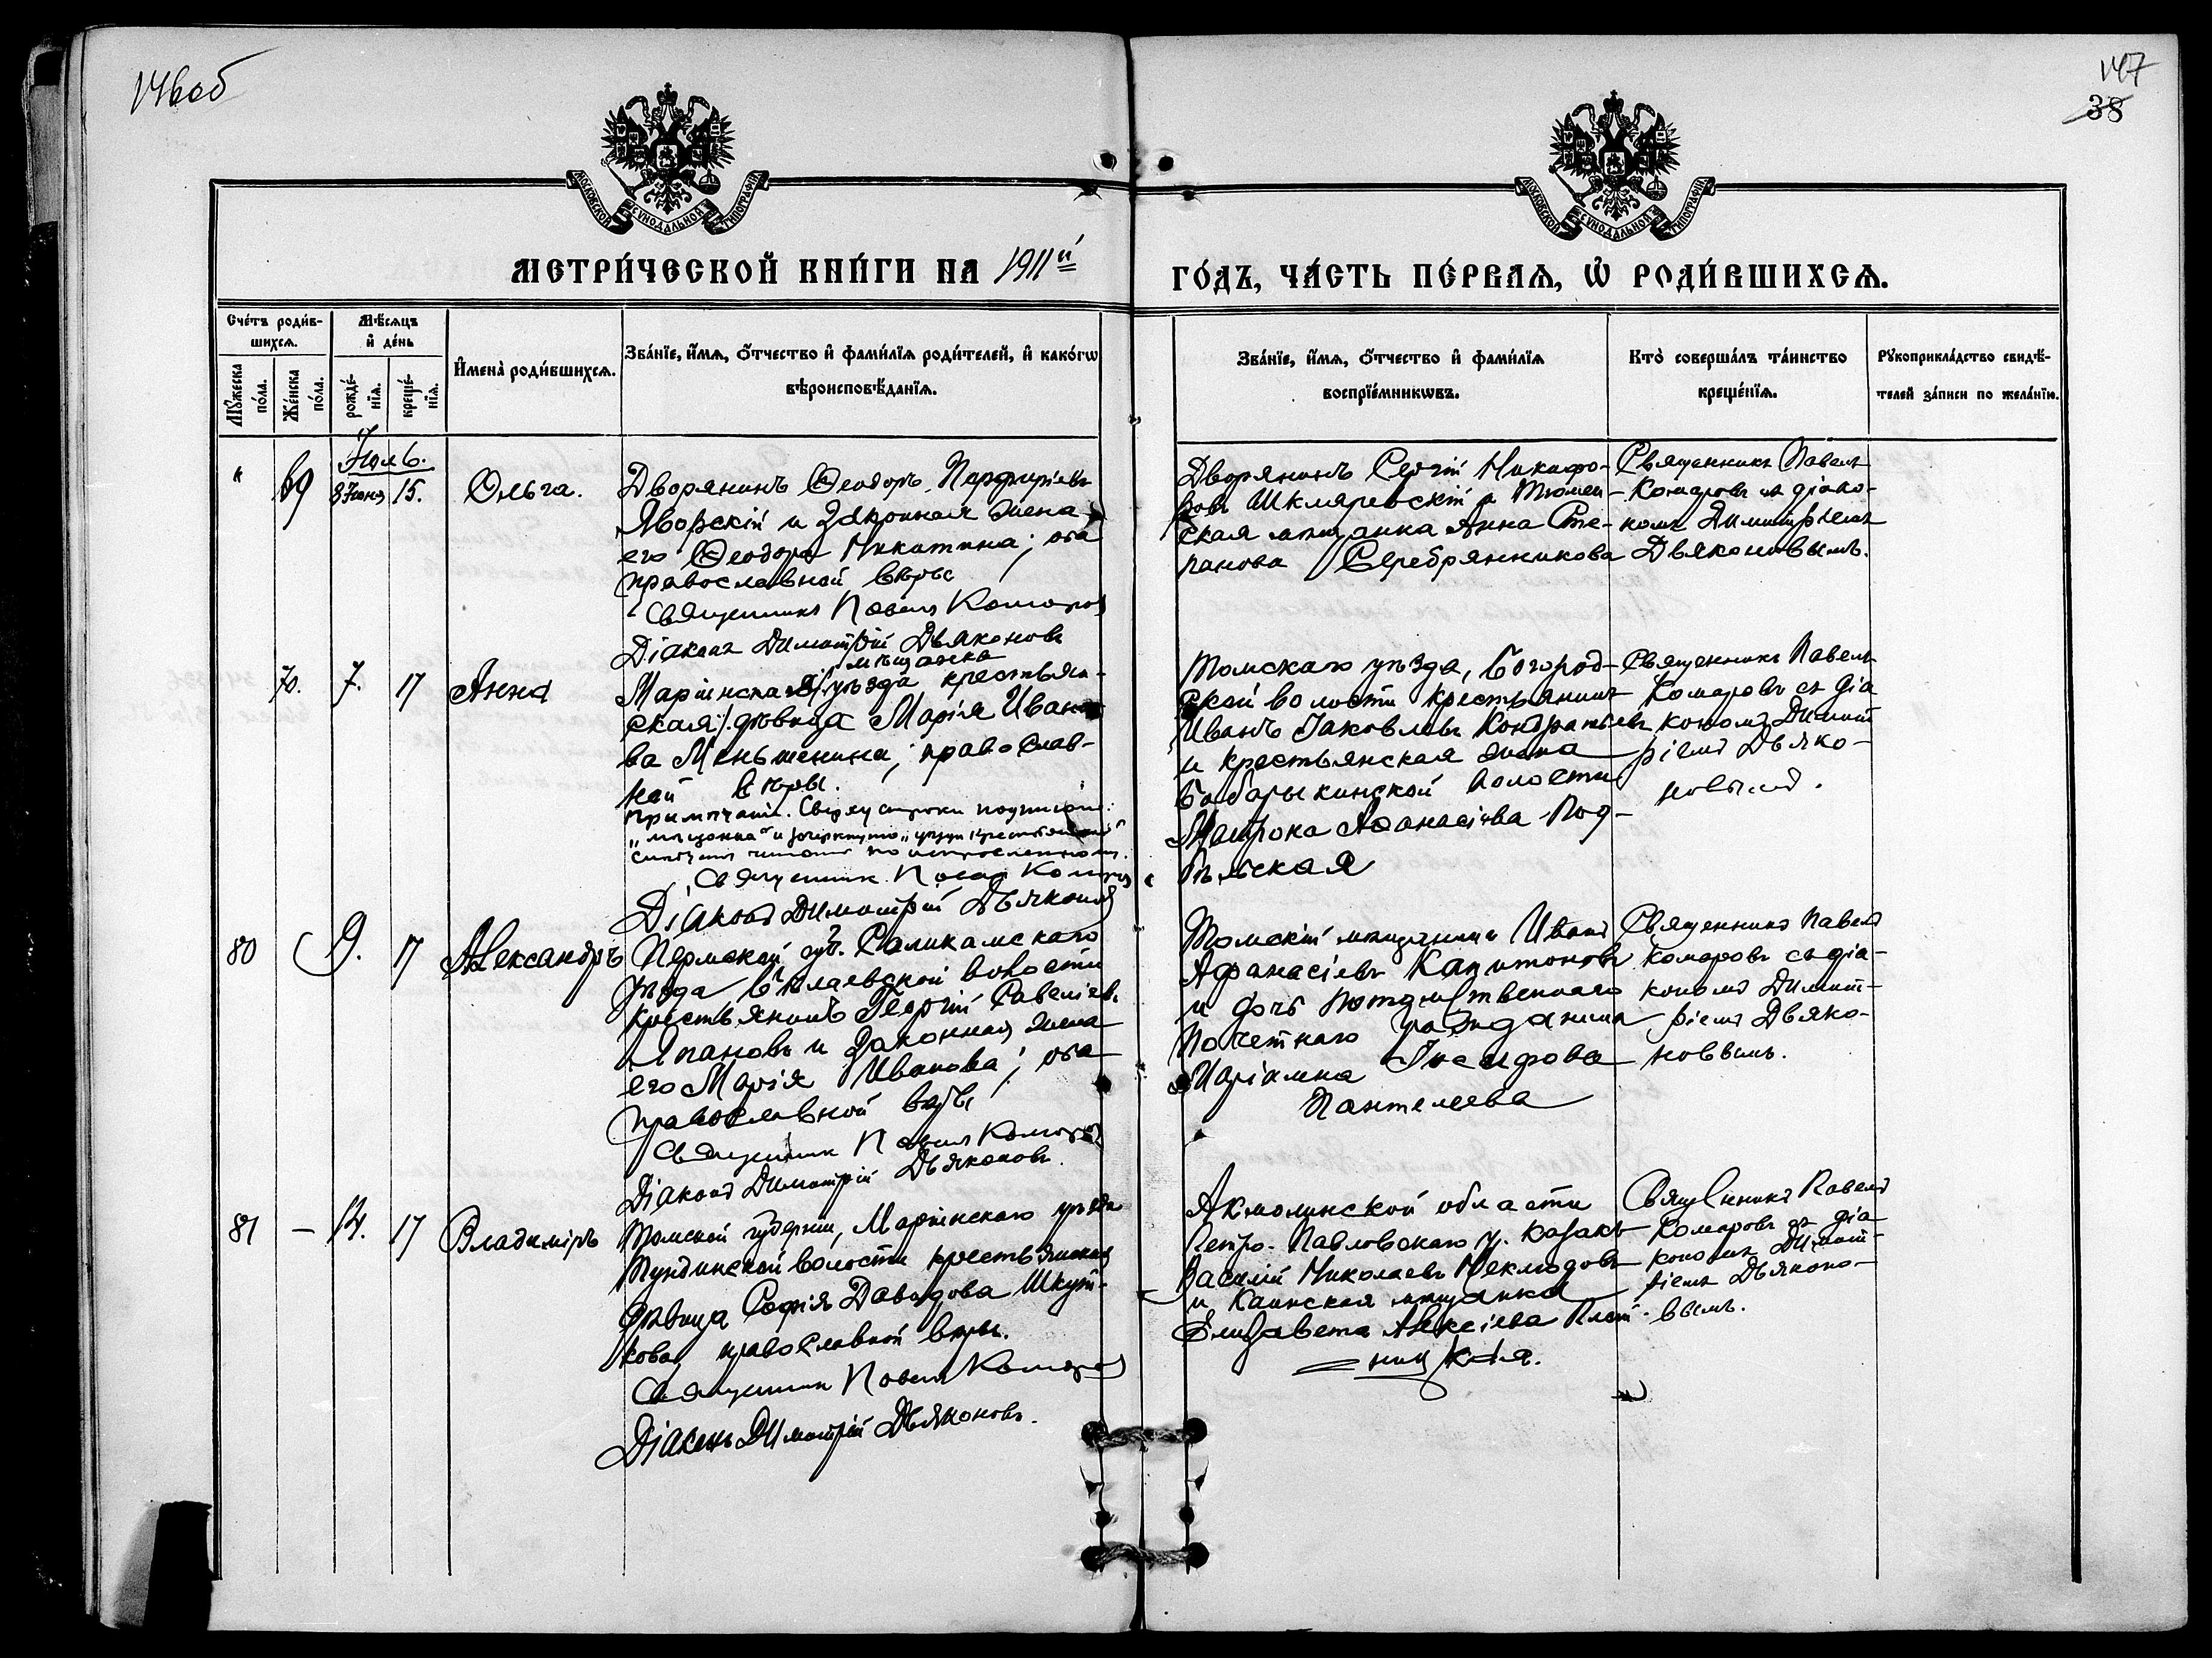 146об
147
38
МОСКОВСКОЙ СѴНОДАЛЬНОЙ ТИПОГРАФІИ
МОСКОВСКОЙ СѴНОДАЛЬНОЙ ТИПОГРАФІИ
МЕТРИ́ЧЕСКОЙ КНИ́ГИ НА 1911й
ГО́ДЪ, ЧА́СТЬ ПЕ́РВАѦ, Ѡ҆ РОДИ́ВШИХСѦ.
Сче́тъ роди́в-
шихсѧ.
Мꙋ́жеска по́ла.
Же́нска по́ла.
Мѣ́сѧцъ
и҆ де́нь
рожде́-
нїѧ.
креще́-
нїѧ.
И҆мена̀ роди́вшихсѧ.
Зва́нїе, и҆́мѧ, ѻ҆́тчество и҆ фами́лїѧ роди́телей, и҆ како́гѡ
вѣроисповѣ́данїѧ.
Зва́нїе, и҆́мѧ, ѻ҆́тчество и҆ фами́лїѧ
воспрїе́мникѡвъ.
Кто̀ соверша́лъ та́инство
креще́нїѧ.
Рꙋкоприкла́дство свидѣ́-
телей за́писи по жела́нїю.
Іюль.
" 69 8 Іюня 15. Ольга.
Дворянинъ Ѳеодоръ Порфиріевъ
Яворскій и законная жена
его Ѳеодора Никитина; оба
православной вѣры
Священникъ Павелъ Комаровъ
Діаконъ Димитрій Дьяконовъ
Дворянинъ Сергій Никифо-
ровъ Шкляревскій и Томск-
ская мѣщанка Анна Сте-
панова Серебрянникова
Священникъ Павелъ
Комаровъ съ діако-
номъ Димитріемъ
Дьяконовымъ.
70. 7. 17 Анна
мѣщанка
Маріинская уѣзда крестьян-
ская дѣвица Марія Ивано-
ва Меньшенина; православ-
ной вѣры.
Примѣчаніе. Сверху строки подписано:
„мѣщанка" и зачеркнуто „уѣзда крестьянская"
читать по исправленному.
Священник Павел Комаров
Діаконъ Димитрій Дьяконовъ
Томскаго уѣзда, Богород-
ской волости крестьянинъ
Иванъ Іаковлевъ Кондратьевъ
и крестьянская жена
Бабарыкинской волости
Матрона Аѳанасіева Под-
бѣльская
Священникъ Павелъ
Комаровъ съ діа
кономъ Димит
ріемъ Дьяко-
новымъ.
80 9. 17 Александръ
Пермской губ. Саликамскаго
уѣзда волости
крестьянинъ Георгій Савеліевъ
и законная жена
его Марія Иванова; оба
православной вѣры
Священник Павел Комаров
Діаконъ Димитрій Дьяконовъ.
Томскій мѣщанинъ Иванъ
Афанасіевъ Капитоновъ
и дочь потомственнаго
почетнаго гражданина
Маріамна Іосифова
Пантелеева
Священникъ Павелъ
Комаровъ съ діа-
кономъ Димит-
ріемъ Дьяко-
новымъ.
81 — 14. 17 Владиміръ
Томской губерніи, Маріинскаго уѣзда
Тундинской волости крестьянская
дѣвица Софія Давидова Шкут-
кова, православной вѣры.
Священник Павел Комаров
Діаконъ Димитрій Дьяконовъ.
Акмолинской области
Петро-Павловскаго у. казакъ
Василій Николаевъ Неклюдовъ
и Каинская мѣщанка
Елизавета Алексіева Плот-
ницкая.
Священникъ Павелъ
Комаровъ съ діа
кономъ Димит-
ріемъ Дьяконо-
вымъ.